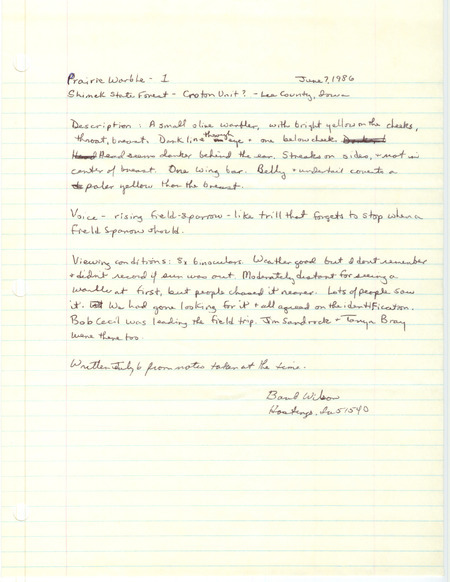 Prairie Warbler - 1 June 7, 1986
Shimek State Forest - Croton Unit? - Lee County, Iowa
Description: A small olive warbler, with bright yellow on the cheeks,
throat, breast. Dark line through eye + one below cheek.
Head seems darker behind the ear. Streaks on sides, + not in
center of breast. One wing bar. Belly + undertail coverts a
paler yellow than the breast.
Voice - rising field-sparrow-like trill that forgets to stop when a
Field Sparrow should.
Viewing conditions: 8x binoculars. Weather good but I don't remember
+ didn't record if sun was out. Moderately distant for seeing a
warbler at first, but people chased it nearer. Lots of people saw
it. We had gone looking for it + all agreed on the identification.
Bob Cecil was leading the field trip. Jim Sandrock + Tanya Bray
were there too.
Written July 6 from notes taken at the time.
Barb Wilson
Hastings, Ia 51540